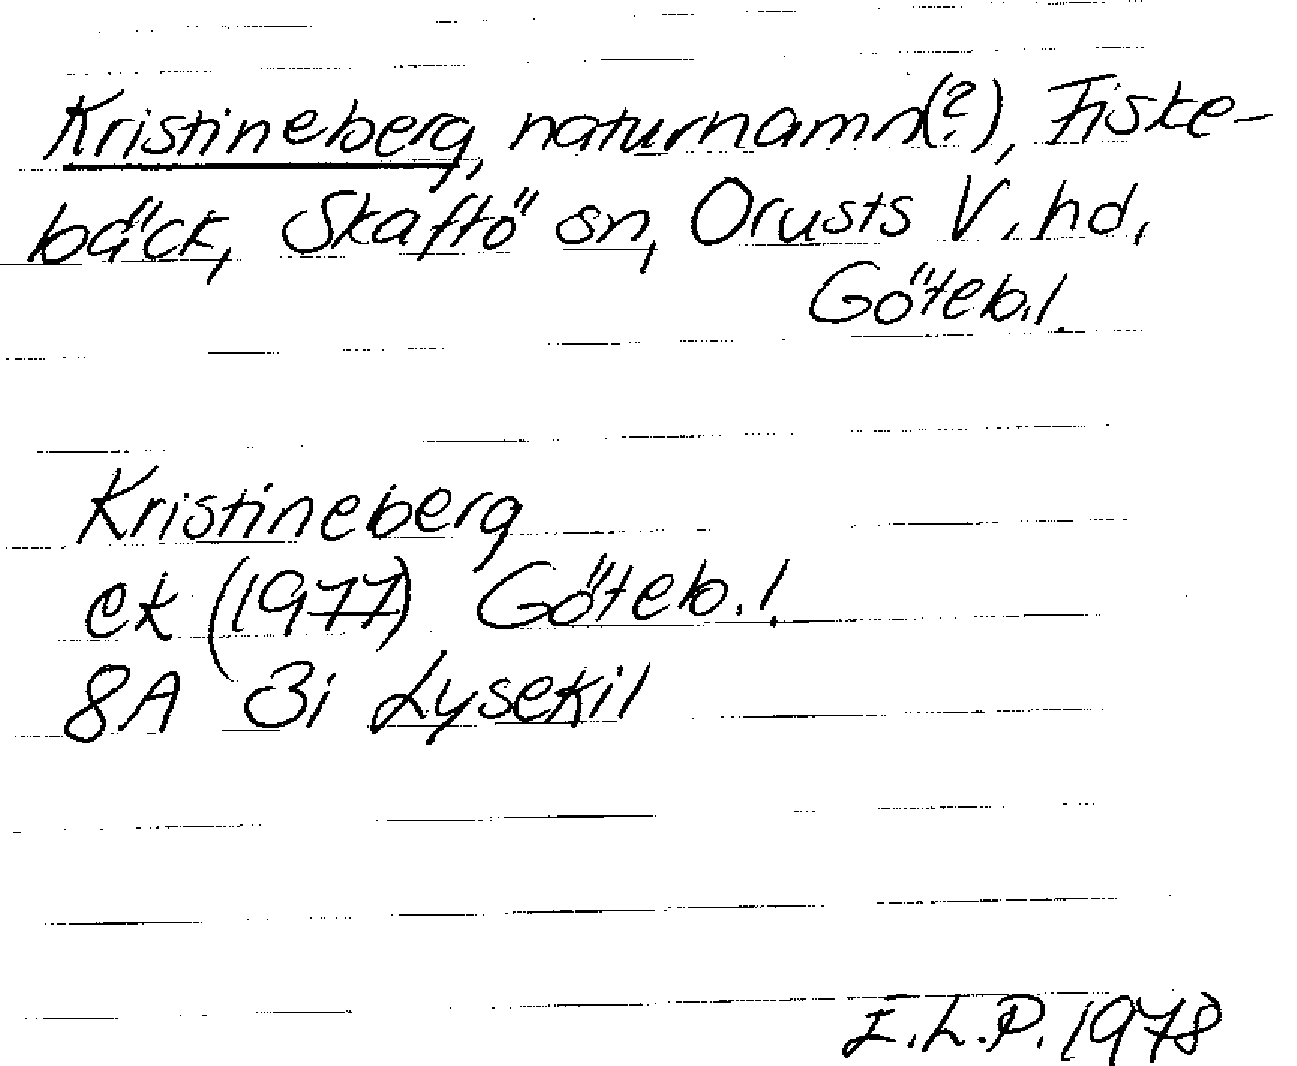 Kristineberg, naturnamn(?), Fiske-
bäck, Skaftö sn, Orusts V. hd,
Göteb.l.
Kristineberg
ek (1977) Göteb.l.
8A 3i Lysekil
E.L.P. 1978